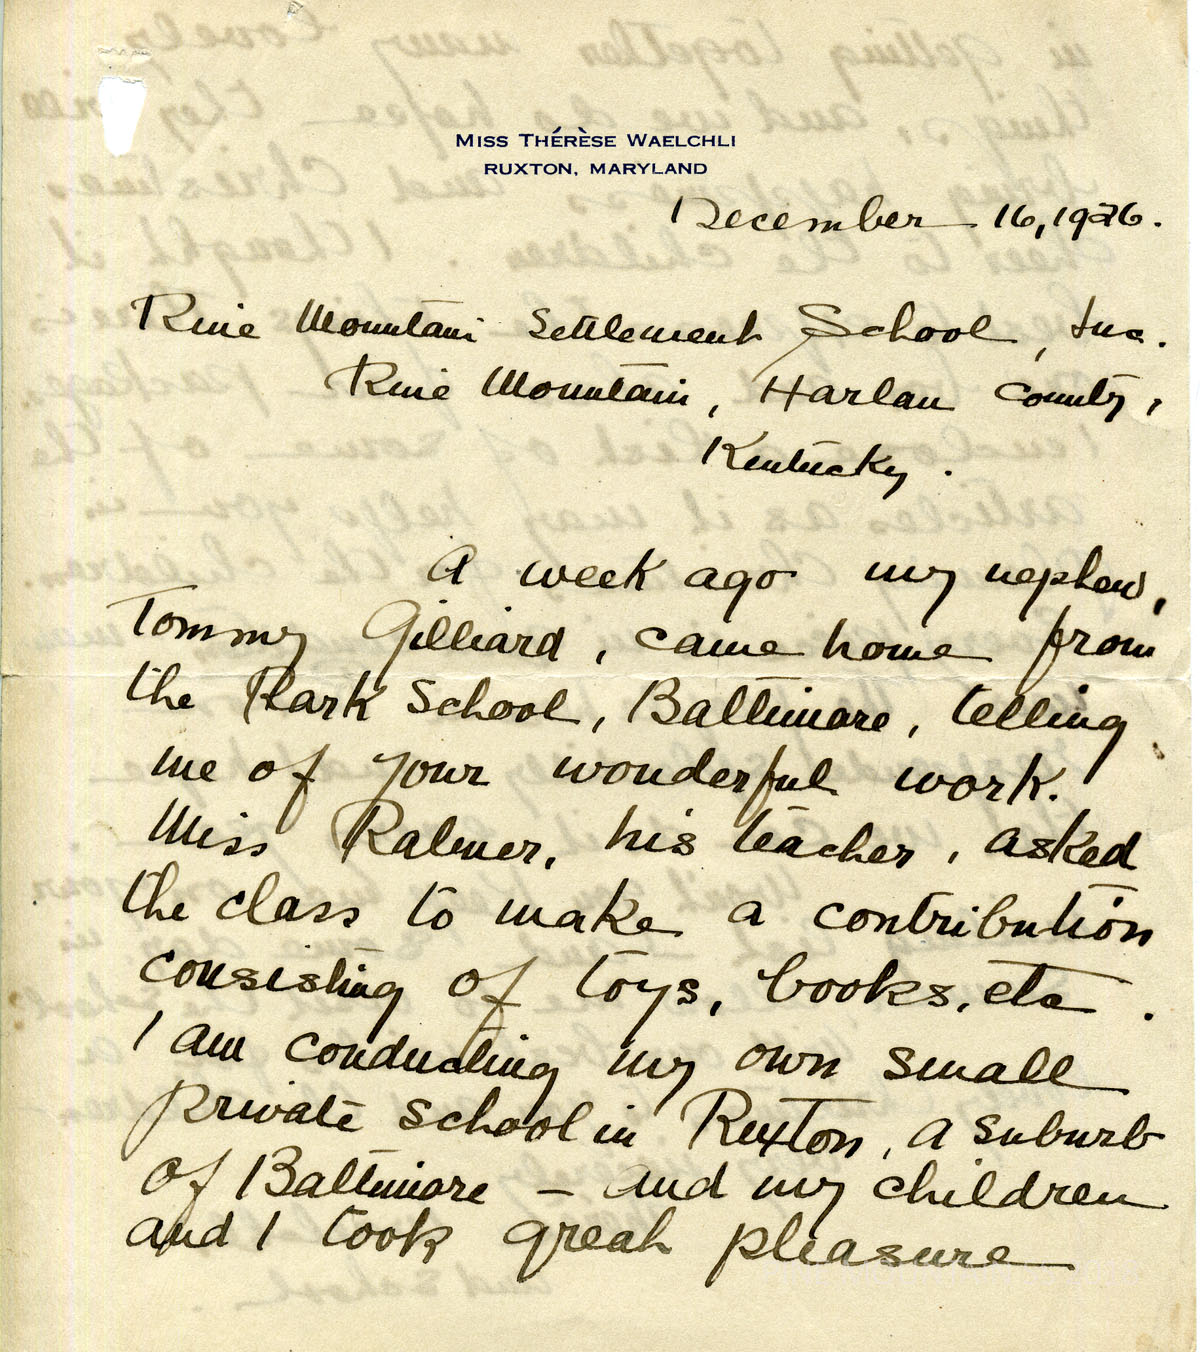 MISS THÉRÈSE WAELCHLI
RUXTON, MARYLAND
December 16, 1926.
Pine Mountain Settlement School, Inc.
Pine Mountain, Harlan County,
Kentucky.
A week ago my nephew,
Tommy Gilliard, came home from
the Park School, Baltimore, telling
me of your wonderful work.
Miss Palmer, his teacher, asked
the class to make a contribution
consisting of toys, books, etc.
I am conducting my own small
private school in Ruxton, a suburb
of Baltimore – and my children
and I took great pleasure